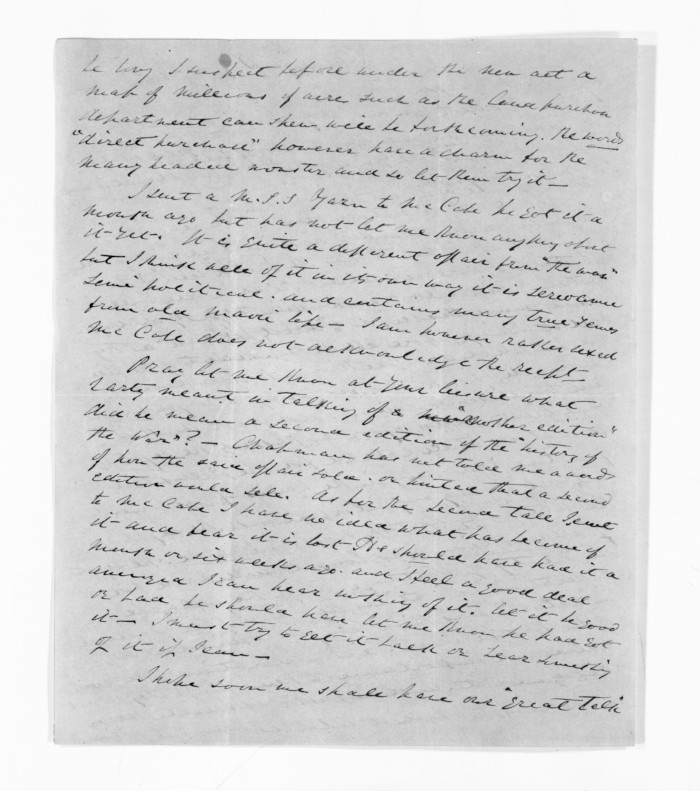 be long I suspect before under the new act a
map of millions of acres such as the land purchase
department can shew will be forthcoming. the words
"direct purchase" however have a charm for the
many headed monster and so let them try it—
I sent a M.S.S Yarn to McCabe he got it a
month ago but has not let me know anything about
it yet. It is quite a different affair from "the war"
but I think well of it in its own way it is serio comic
semi political. and contains many true scenes
from old maori life— I am however rather vexed
McCabe does not acknowledge the receipt—
Pray let me know at your leisure what
Larty meant in talking of "another edition"
did he mean a second edition of the "history of
the War"?— Chapman has not told me a word
of how the said affair sold. or hinted that a second
edition would sell. As for the second tale I sent
to McCabe I have no idea what has become of
it and fear it is lost He should have had it a
month or six weeks ago. and I feel a good deal
annoyed I can hear nothing of it. let it be good
or bad he should have let me know he had got
it— I must try to get it back or hear something
of it if I can—
I hope soon we shall have our "great talk"